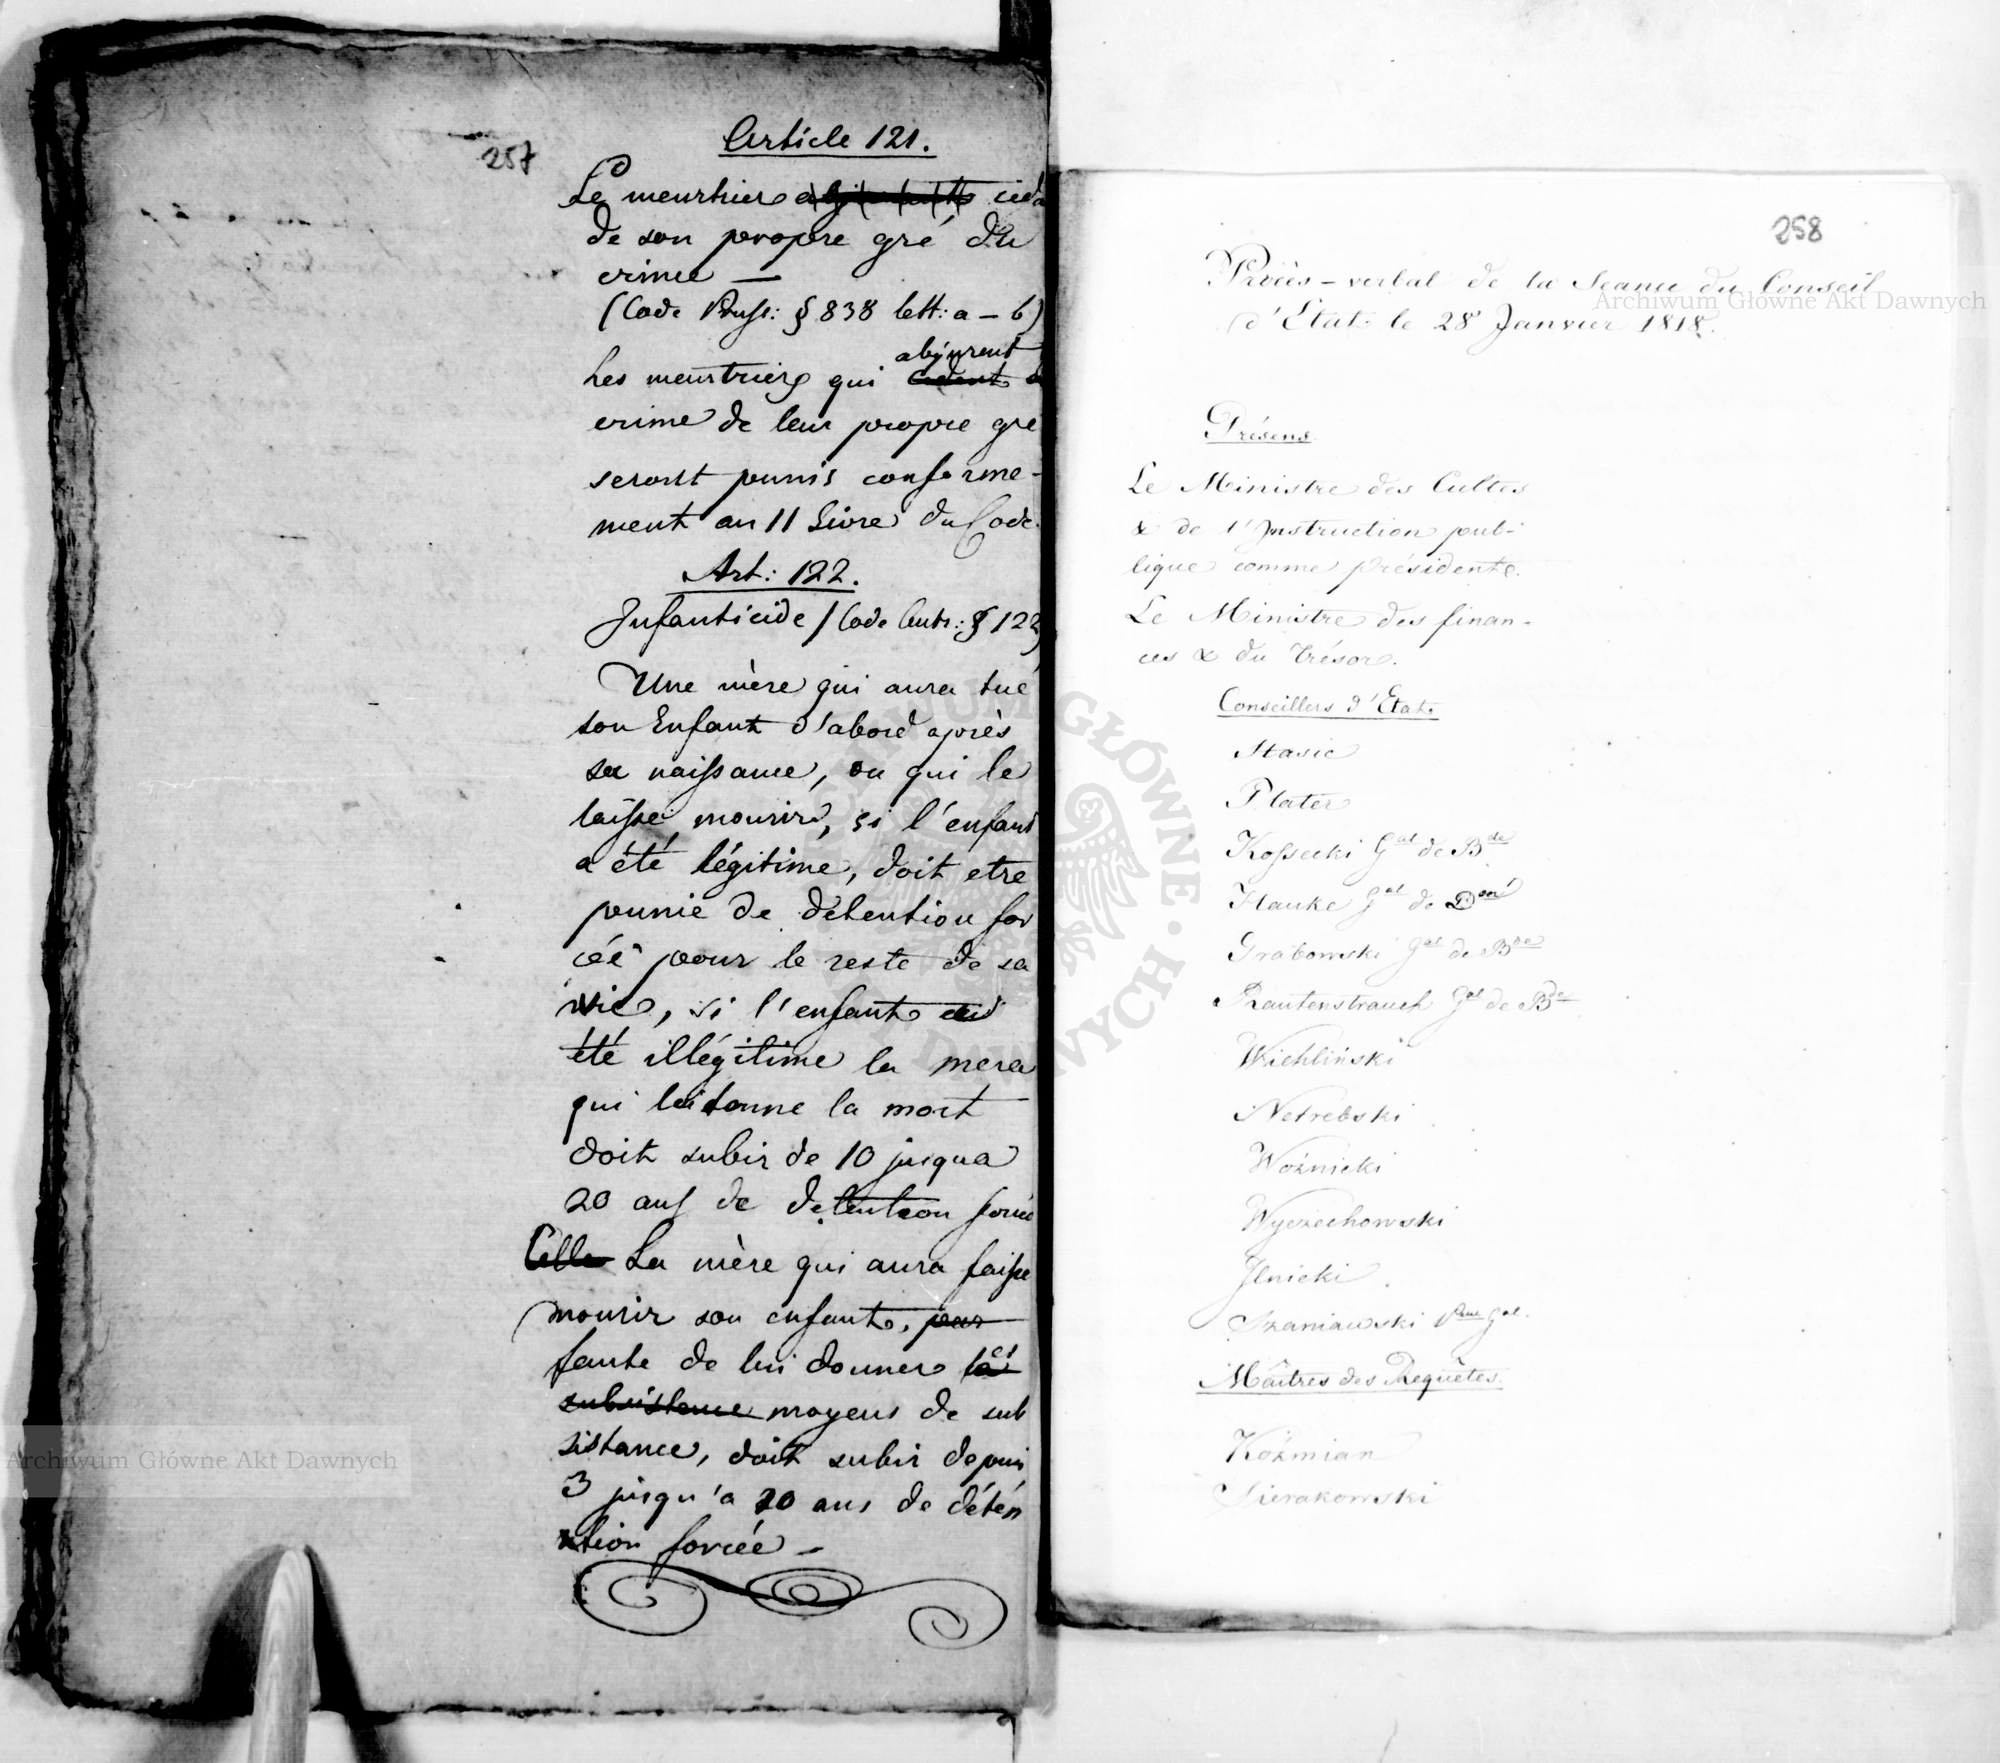 257
Article 121.
Le meurtrier cede
de son propre gré du
crime —
(Code Pruss: § 838 lett: a – b)
abjurent
Les meurtriers qui cedent le
crime de leur propre gré
seront punis conforme-
ment au II Livre du Code.
Art: 122.
Infanticide / Code Autr: § 122)
Une mère qui aura tué
son Enfant d'abord après
sa naissance, ou qui le
laisse mourir, si l'enfant
a été légitime, doit etre
punie de détention for
cée pour le reste de sa
vie, si l'enfant
été illégitime la mere
qui lui donne la mort
doit subir de 10 jusqua
20 ans de detention forcée
Celle La mère qui aura laisse
mourir son enfant, par
faute de lui donner les
subsistence moyens de sub
sistance, doit subir depuis
3 jusqu'a 20 ans de déten
tion forcée –
258
Procès-verbal de la Seance du Conseil
d'Etat le 28 Janvier 1818.
Présens
Le Ministre des Cultes
& de l'Instruction pub-
lique comme présidente.
Le Ministre des finan-
ces & du Trésor.
Conseillers d'Etat
Stasic
Plater
Kossecki Gal de Bde
Hauke Gal de Don
Grabowski Gal de Bde
Rautenstrauch Gal de Bde
Wichliński
Netrebski
Woźnicki
Wyczechowski
Ilnicki
Szaniawski Pur Gal.
Maîtres des Requêtes
Koźmian
Sierakowski
Archiwum Główne Akt Dawnych
Archiwum Główne Akt Dawnych
ARCHIWUM GŁÓWNE AKT DAWNYCH